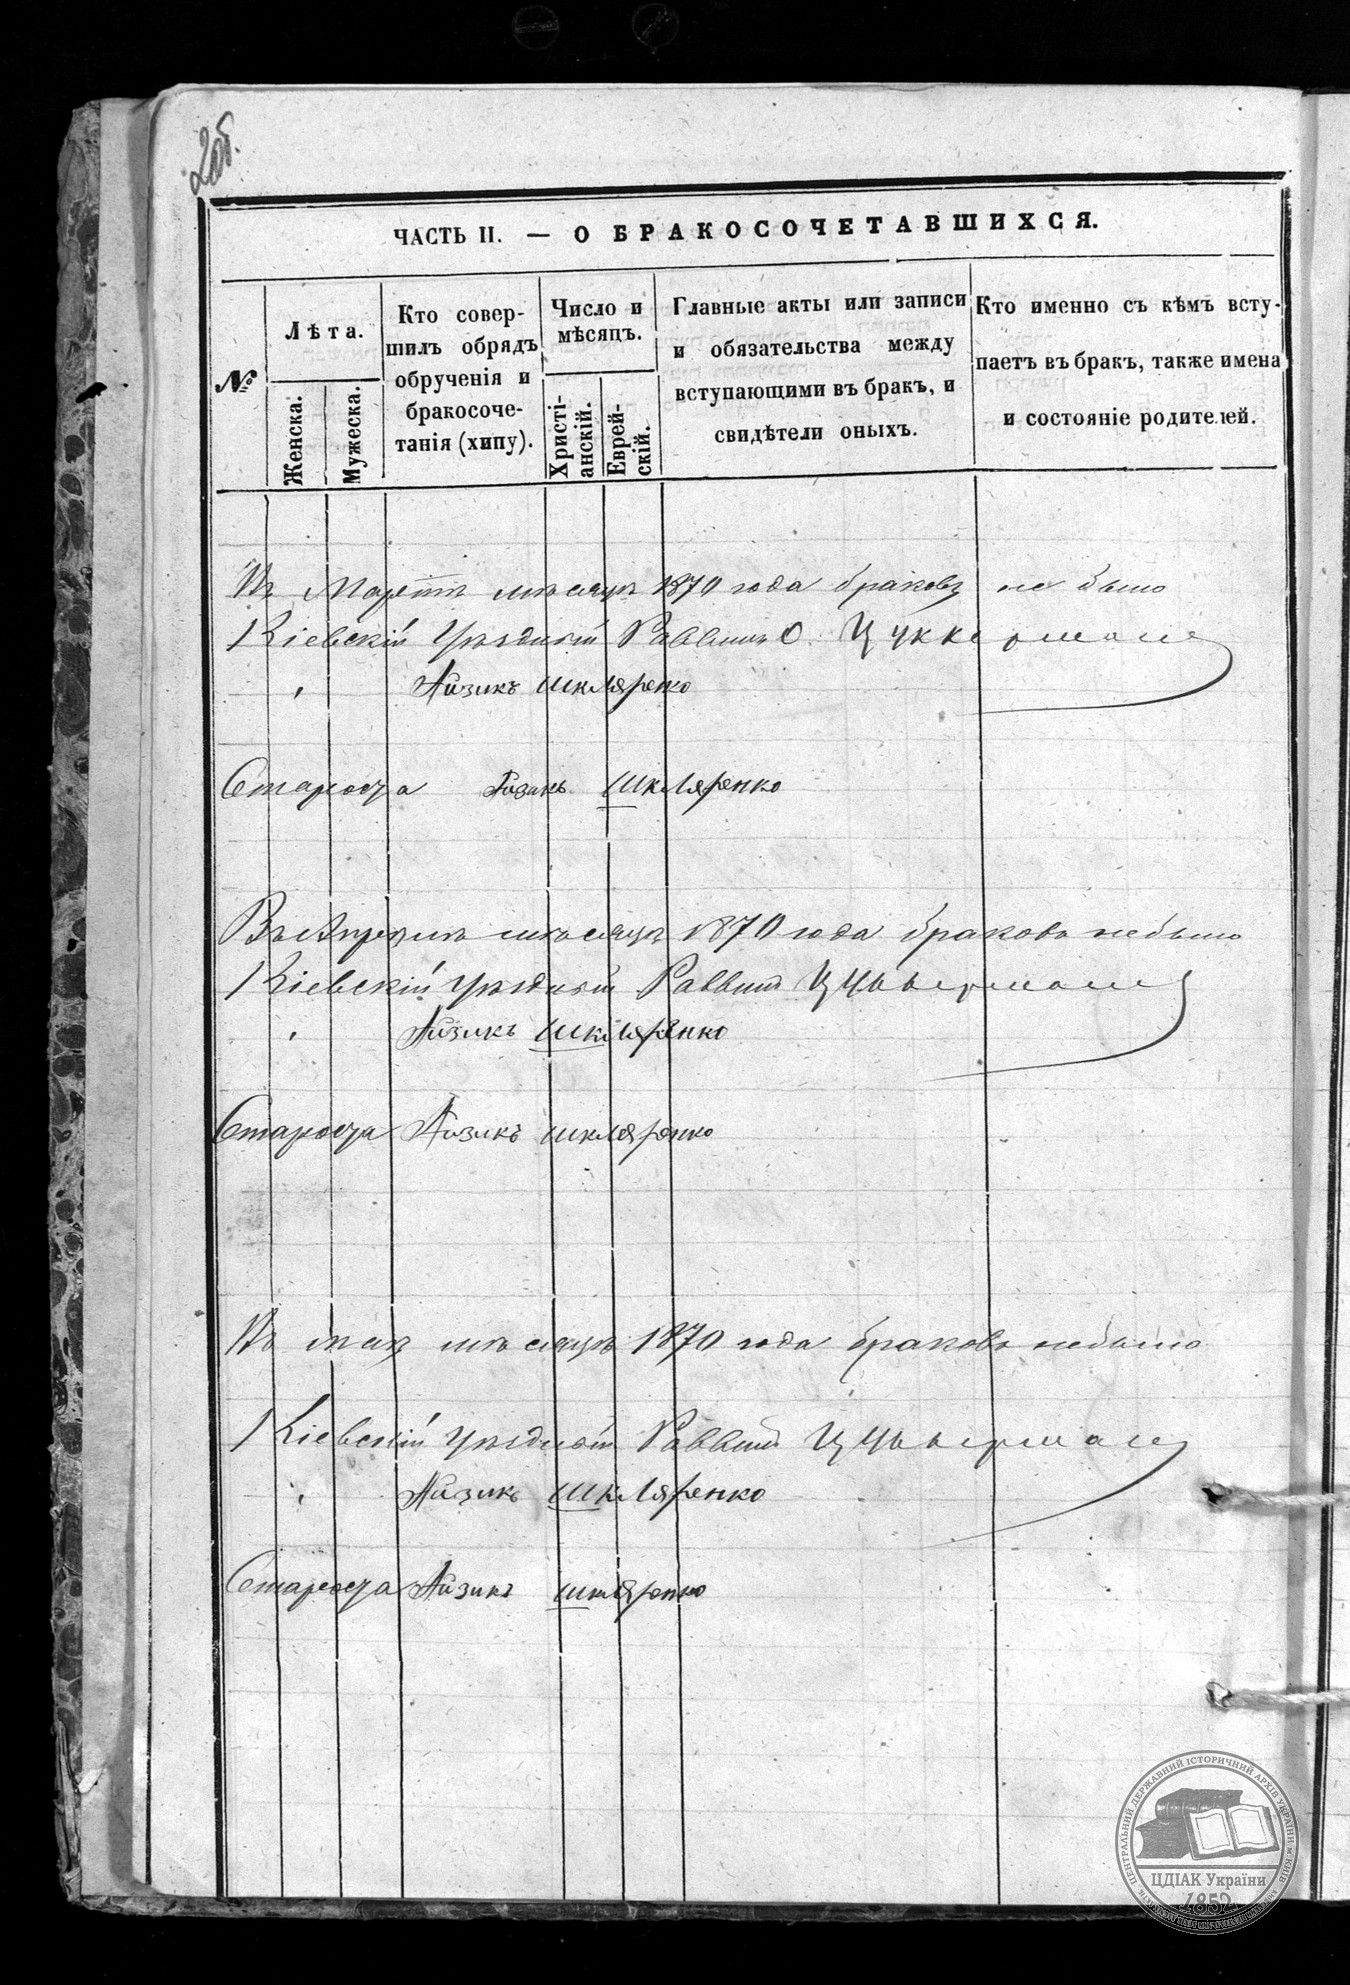 2об.
ЧАСТЬ II. — О БРАКОСОЧЕТАВШИХСЯ.
№
Лѣта.
Женска.
Мужеска.
Кто совер-
шилъ обрядъ
обрученія и
бракосоче-
танія (хипу).
Число и
мѣсяцъ.
Христі-
анскій.
Еврей-
скій.
Главные акты или записи
и обязательства между
вступающими въ бракъ, и
свидѣтели оныхъ.
Кто именно съ кѣмъ всту-
паетъ въ бракъ, также имена
и состояніе родителей.
Въ Мартѣ мѣсяцѣ 1870 года браковъ не было
Кіевскій Уѣздный Раввинъ О. Цуккерманъ
Айзикъ Шкляренко
Староста Айзикъ Шкляренко
Въ Апрелѣ мѣсяцѣ 1870 года браковъ небыло
Кіевскій Уѣздный Раввинъ Цуккерманъ
Айзикъ Шкляренко
Староста Айзикъ Шкляренко
Въ маѣ мѣсяцѣ 1870 года браковъ небыло
Кіевскій Уѣздный Раввинъ Цуккерманъ
Айзикъ Шкляренко
Староста Айзикъ Шкляренко
ЦЕНТРАЛЬНИЙ ДЕРЖАВНИЙ ІСТОРИЧНИЙ АРХІВ УКРАЇНИ м. КИЇВ
ЦДІАК України
1852